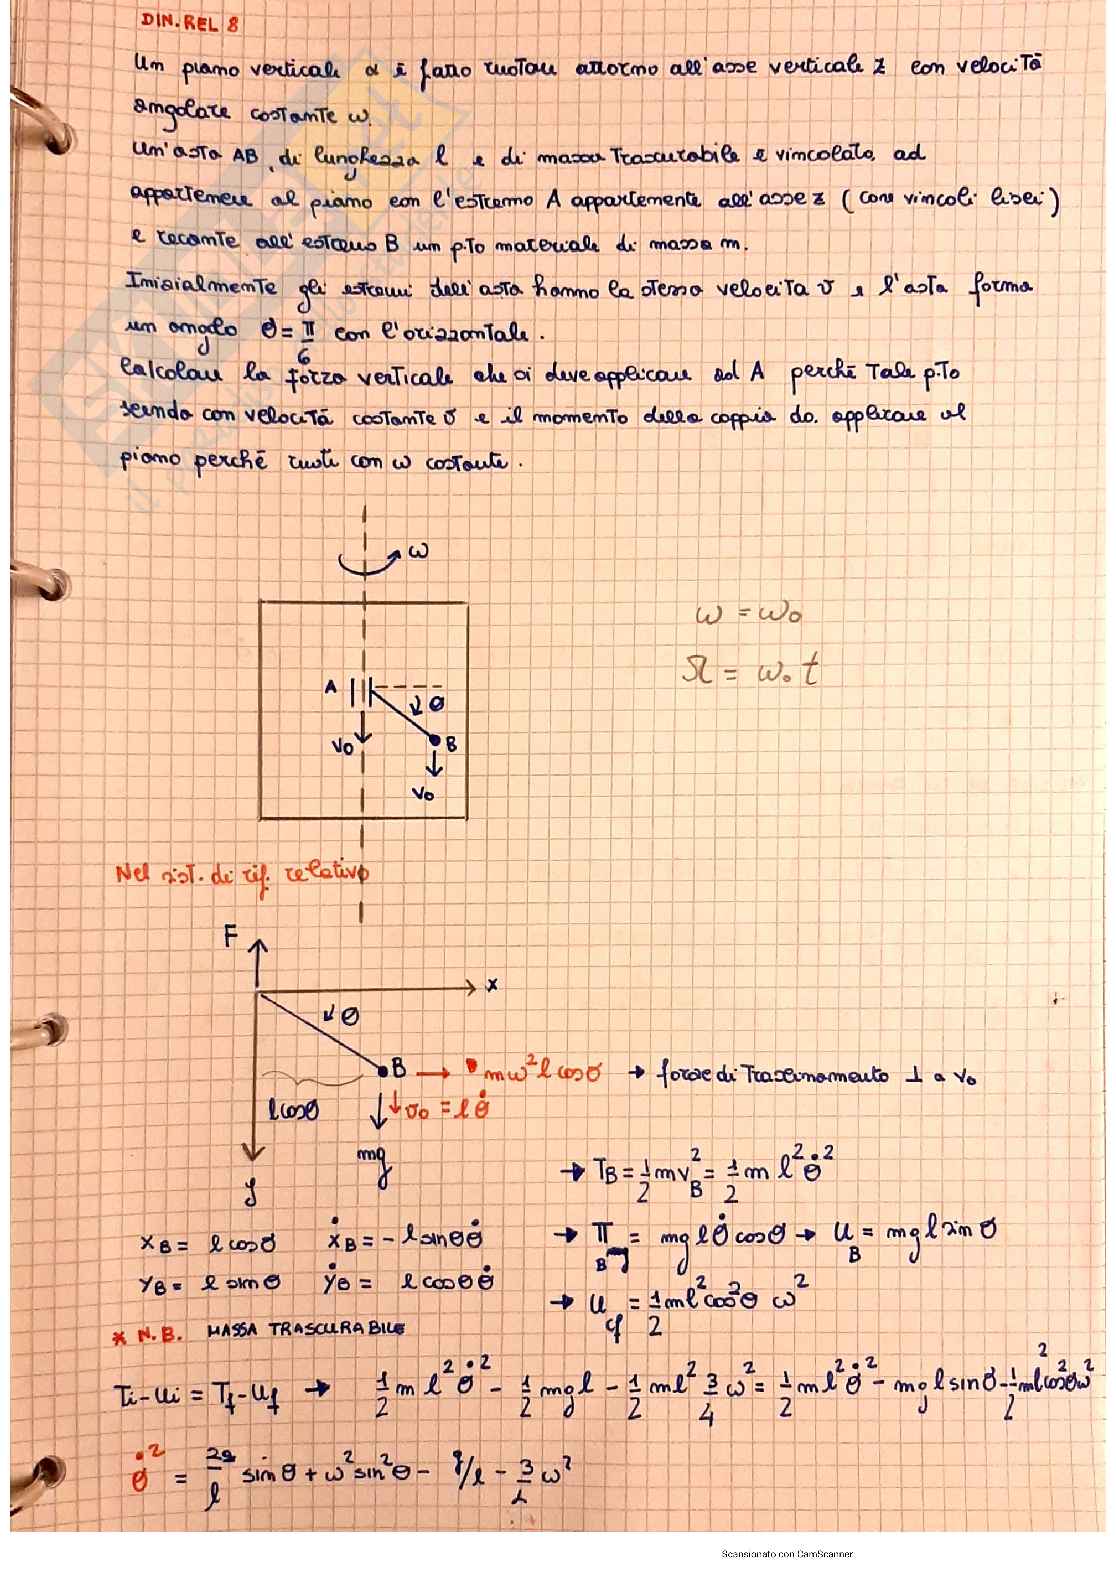 DIN.REL 8
Un piano verticale α è fatto ruotare attorno all'asse verticale z con velocità
angolare costante ω.
Un'asta AB, di lunghezza l e di massa trascurabile è vincolata ad
appartenere al piano con l'estremo A appartenente all'asse z (con vincoli lisci)
e recante all'estremo B un p.to materiale di massa m.
Inizialmente gli estremi dell'asta hanno la stessa velocità v e l'asta forma
un angolo θ = π/6 con l'orizzontale.
Calcolare la forza verticale che si deve applicare ad A perché tale p.to
scenda con velocità costante v e il momento della coppia da applicare al
piano perché ruoti con ω costante.
ω
ω = ω₀
Ω = ω₀ t
A
θ
B
V₀
V₀
Nel sist. di rif. relativo
F
x
θ
B → mω²l cosθ → forze di Trascinamento ⊥ a v₀
l cosθ
v₀ = l θ̇
mg
y
→ T_B = 1/2 m v_B² = 1/2 m l² θ̇²
x_B = l cosθ ẋ_B = - l sinθ θ̇
→ Π_B = mg l θ̇ cosθ → U_B = mg l sin θ
y_B = l sinθ ẏ_B = l cosθ θ̇
→ U_cf = 1/2 m l² cos²θ ω²
* N.B. MASSA TRASCURABILE
Ti - Ui = Tf - Uf → 1/2 m l² θ̇² - 1/2 mgl - 1/2 ml² 3/4 ω² = 1/2 ml² θ̇² - mg l sinθ - 1/2 ml² cos²θ ω²
θ̇² = 2g/l sinθ + ω² sin²θ - g/l - 3/2 ω²
Scansionato con CamScanner